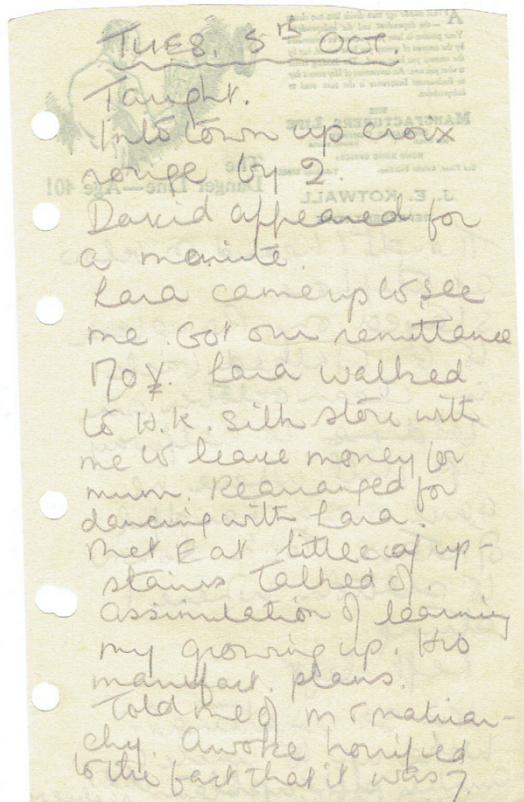 TUES. 5TH OCT.
Taught.
Into town up croix
rouge by 2.
David appeared for
a minute.
Lara came up to see
me. Got our remittance
170 ¥. Lara walked
to H.K. Silk store with
me to leave money for
mum. Rearranged for
dancing with Lara.
Met E at little caf up-
stairs Talked of.
assimilation of learning
my growing up. His
manufact. plans.
Told me of matriar-
chy. Awoke horrified
to the fact that it was 7.
THE
MANUFACTURERS LIFE
The
Danger Line—Age 40!
J. E. KOTWALL